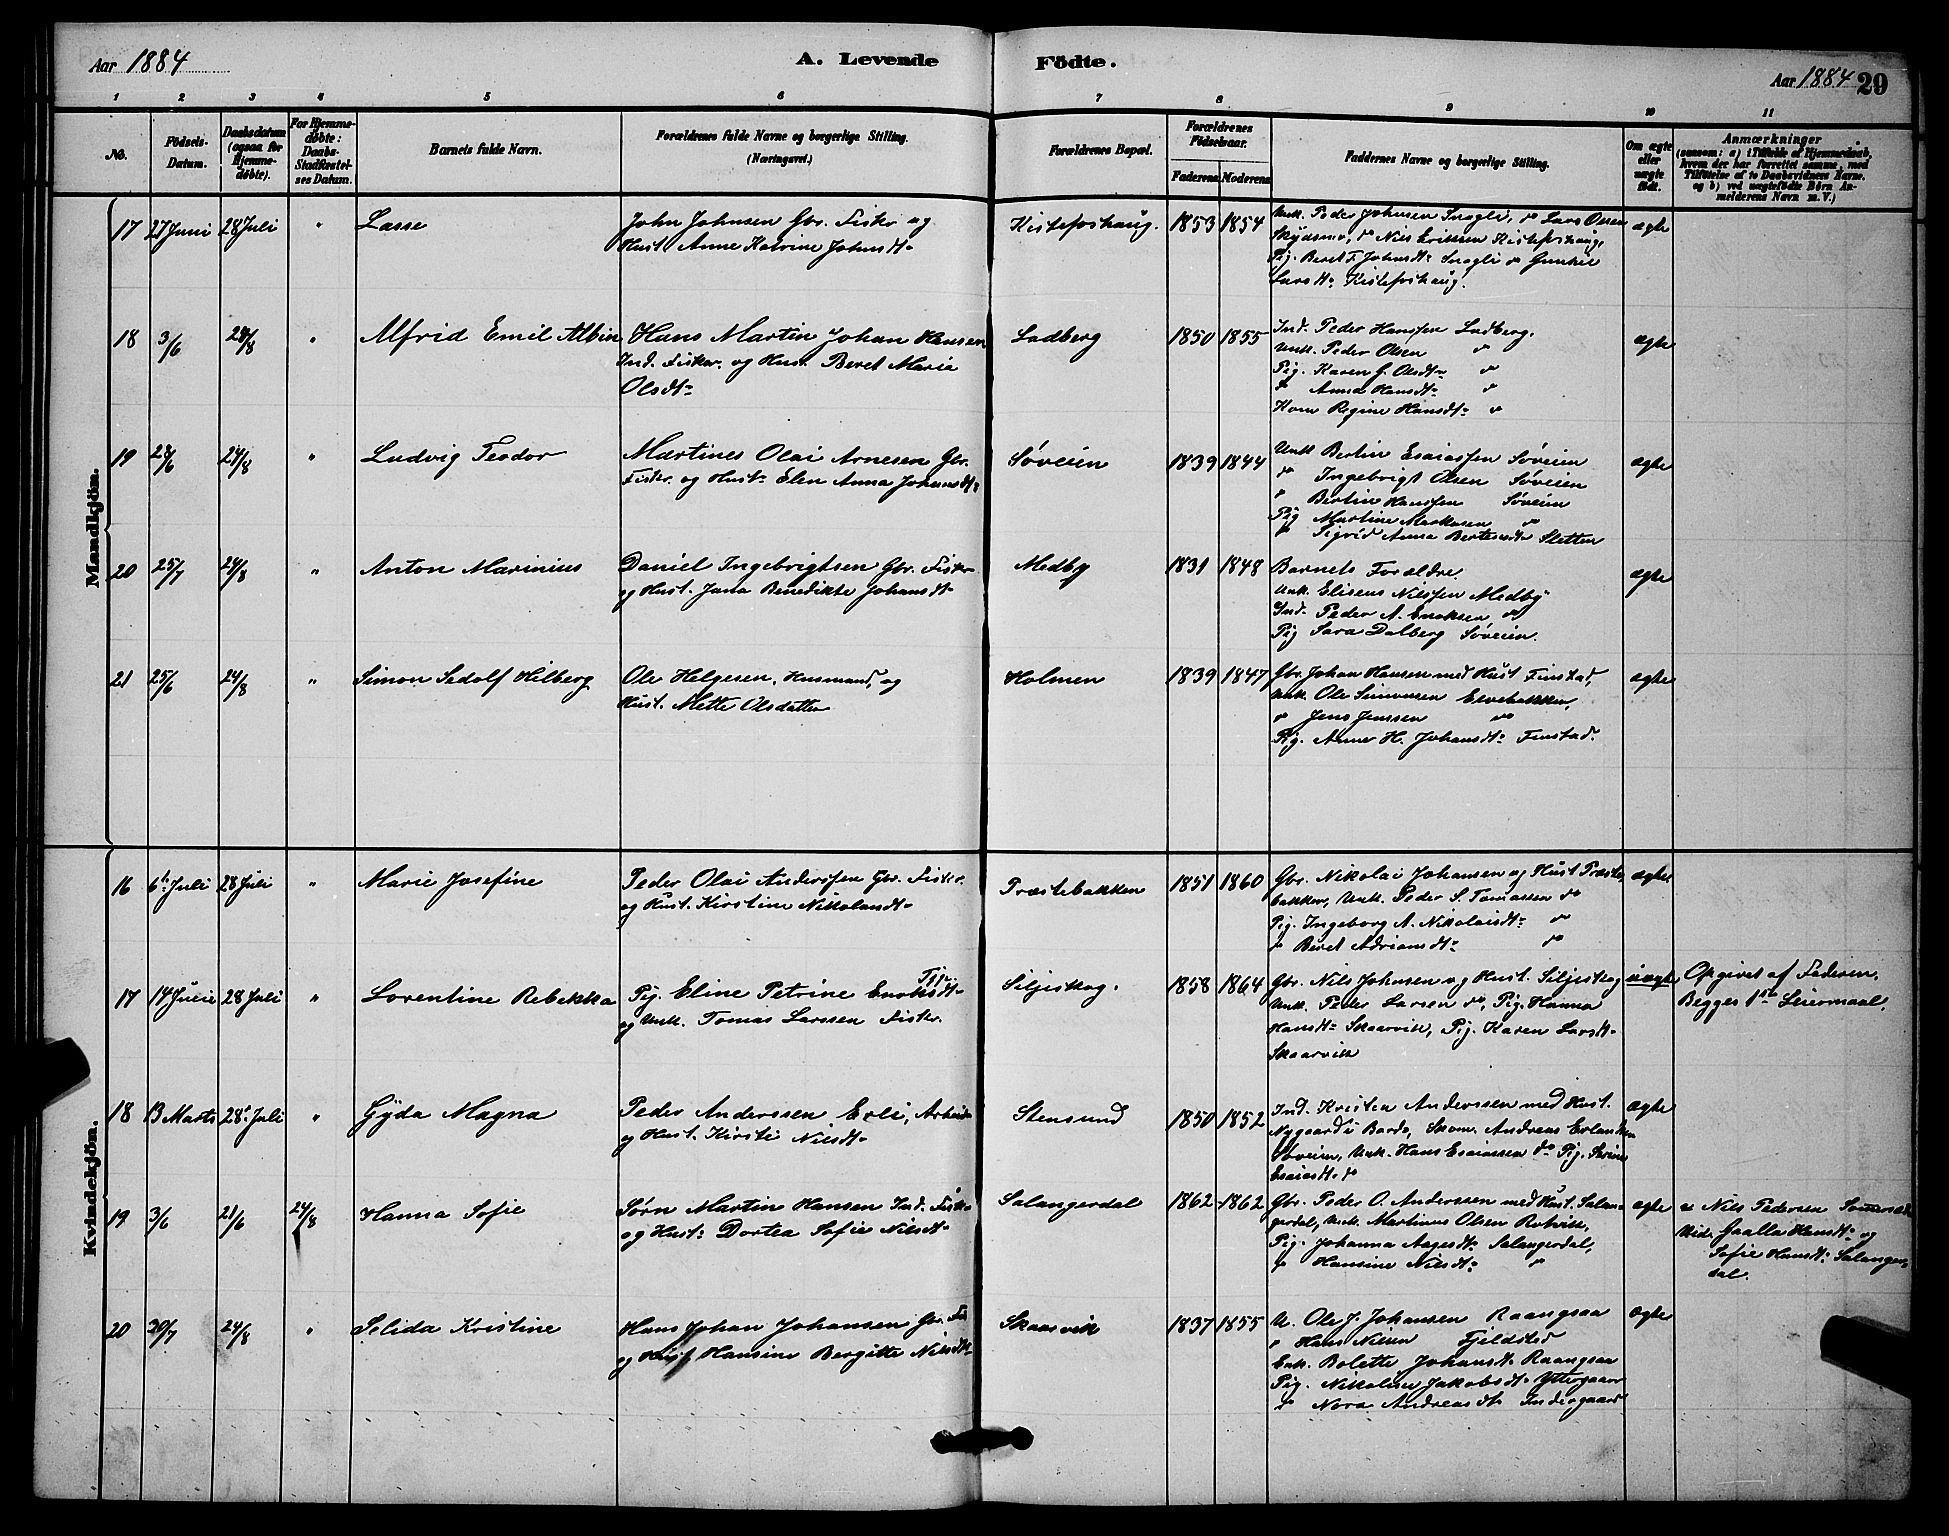 Aar 1884
A. Levende Födte.
Aar 1884 29
1 2 3 4 5 6 7 8 9 10 11
No.
Födsels-
Datum.
Daabsdatum
(ogsaa for
Hjemme-
døbte).
For Hjemme-
døbte:
Daabs-
Stadfæstel-
ses Datum.
Barnets fulde Navn.
Forældrenes fulde Navne og borgerlige Stilling.
(Næringsvei.)
Forældrenes Bopæl.
Forældrenes
Fødselsaar.
Faderens Moderens
Faddernes Navne og borgerlige Stilling.
Om ægte
eller
uægte
født.
Anmærkninger
(saasom: a) i Tilfælde af Hjemmedaab,
hvem der har forrettet samme, med
Tilföielse af to Daabsvidners Navne.
og b) ved uægtefödte Börn An-
melderens Navn m. V.)
Mandkjön.
17 27 Juni 28 Juli " Lasse
John Johnsen Gbr. Fisker og
Hust. Anne Katrine Johnsdt.
Kistefoshaug. 1853 1854
Unk. Peder Johnsen Snagli, do Lars Olsen
do Nils Eriksen Kistefoshaug,
Pig. Beret F. Johnsdt. Snagli do
Larsdt. Kistefoshaug.
ægte
18 3/6 24/8 " Alfrid Emil Albin
Hans Martin Johan Hansen
Ind. Fisker. og Hust. Beret Marie
Olsdt.
Ladberg 1850 1855
Ind. Peder Hanssen Ladberg.
Unk. Peder Olsen do
Pig. Karen G. Olsdt. do
do Anna Hansdt. do
Kone Regine Hansdt. do
ægte
19 28/6 24/8 " Ludvig Teodor
Martines Olai Arnesen Gbr.
Fisker. og Hust. Elen Anna Johansdt.
Søveien 1839 1844
Unk Bertin Esaiassen Søveien
do Ingebrigt Olsen Søveien
do Bertin Hanssen Søveien
Pig Martine Markusen do
do Sigrid Anna Sletten
ægte
20 25/7 24/8 " Anton Marinius
Daniel Ingebrigtsen Gbr. Fisker
og Hust. Jana Benedikte Johansdt.
Medby 1831 1848
Barnets Forældre.
Unk. Eliseus Nilssen Medby
Ind. Peder A. Enoksen do
Pig Sara Dalberg Søveien.
ægte
21 25/6 24/8 " Simon Sedolf Hilberg
Ole Helgesen, Husmand, og
Hust. Mette Olsdatter
Holmen 1839 1847
Gbr. Johan Hansen med Hust Finstad,
Unk. Ole Simonsen Elvebakken,
do Jens Jenssen do
Pig. Anne H. Johansdt. Finstad.
ægte
Kvindekjön.
16 6te Juli 28 Juli " Marie Josefine
Peder Olai Anderssen Gbr. Fisker.
og Hust. Kirstine Nikolaidt.
Præstebakken 1851 1860
Gbr. Nikolai Johansen og Hust Præste-
bakken, Unk. Peder S. Tomassen do
Pig. Ingeborg A. Nikolaisdt. do
do Beret Adriansdt. do
ægte
17 14 Juli 28 Juli " Lorentine Rebekka
Pig. Eline Petrine Enoksdt. Tj.
og Unk. Tomas Larssen Fisker.
Siljeskog. 1858 1864
Gbr. Nils Johnsen og Hust. Siljeskog
Unk. Peder Larsen do, Pig. Hanna
Hansdt. Skaarvik, Pig. Karen Larsdt.
Skaarvik
uægte
Opgivet af Faderen.
Begges 1ste Leiermaal.
18 13 Marts 28 Juli " Gyda Magna
Peder Anderssen Erli, Arbeider
og Hust. Kirsti Nilsdt.
Stensund 1850 1852
Ind. Kristen Anderssen med Hust.
Nygaard i Bardo, Skom. Andreas Erlandsen
Søveien, Unk. Hans Esaiassen do Pig.
Esaiasdt. do
Ægte
19 3/6 21/6 24/8 Hanna Sofie
Sørn Martin Hansen Ind. Fisk.
og Hust. Dortea Sofie Nilsdt.
Salangerdal 1862 1862
Gbr. Peder O. Anderssen med Hust. Salan-
gerdal, Unk. Martinus Olsen Rotvik,
Pig. Johanna Aagesdt. Salangerdal,
do Hansine Nilsdt. do
ægte
a Nils Pedersen
Vid: Gaalla Hansdt. og
Sofie Hansdt. Salanger-
dal.
20 30/7 24/8 " Selida Kristine
Hans Johan Johansen Gbr. Fi
og Hust Hansine Bergitte Nilsdt.
Skaarvik 1837 1855
U. Ole J. Johansen Raangsaa
do Hans Nilsen Fjeldsted
Enk. Bolette Johansdt. Raangsaa
Pig. Nikoline Jakobsdt. Yttergaard
do Nora Andreasdt. Indergaard
Ægte